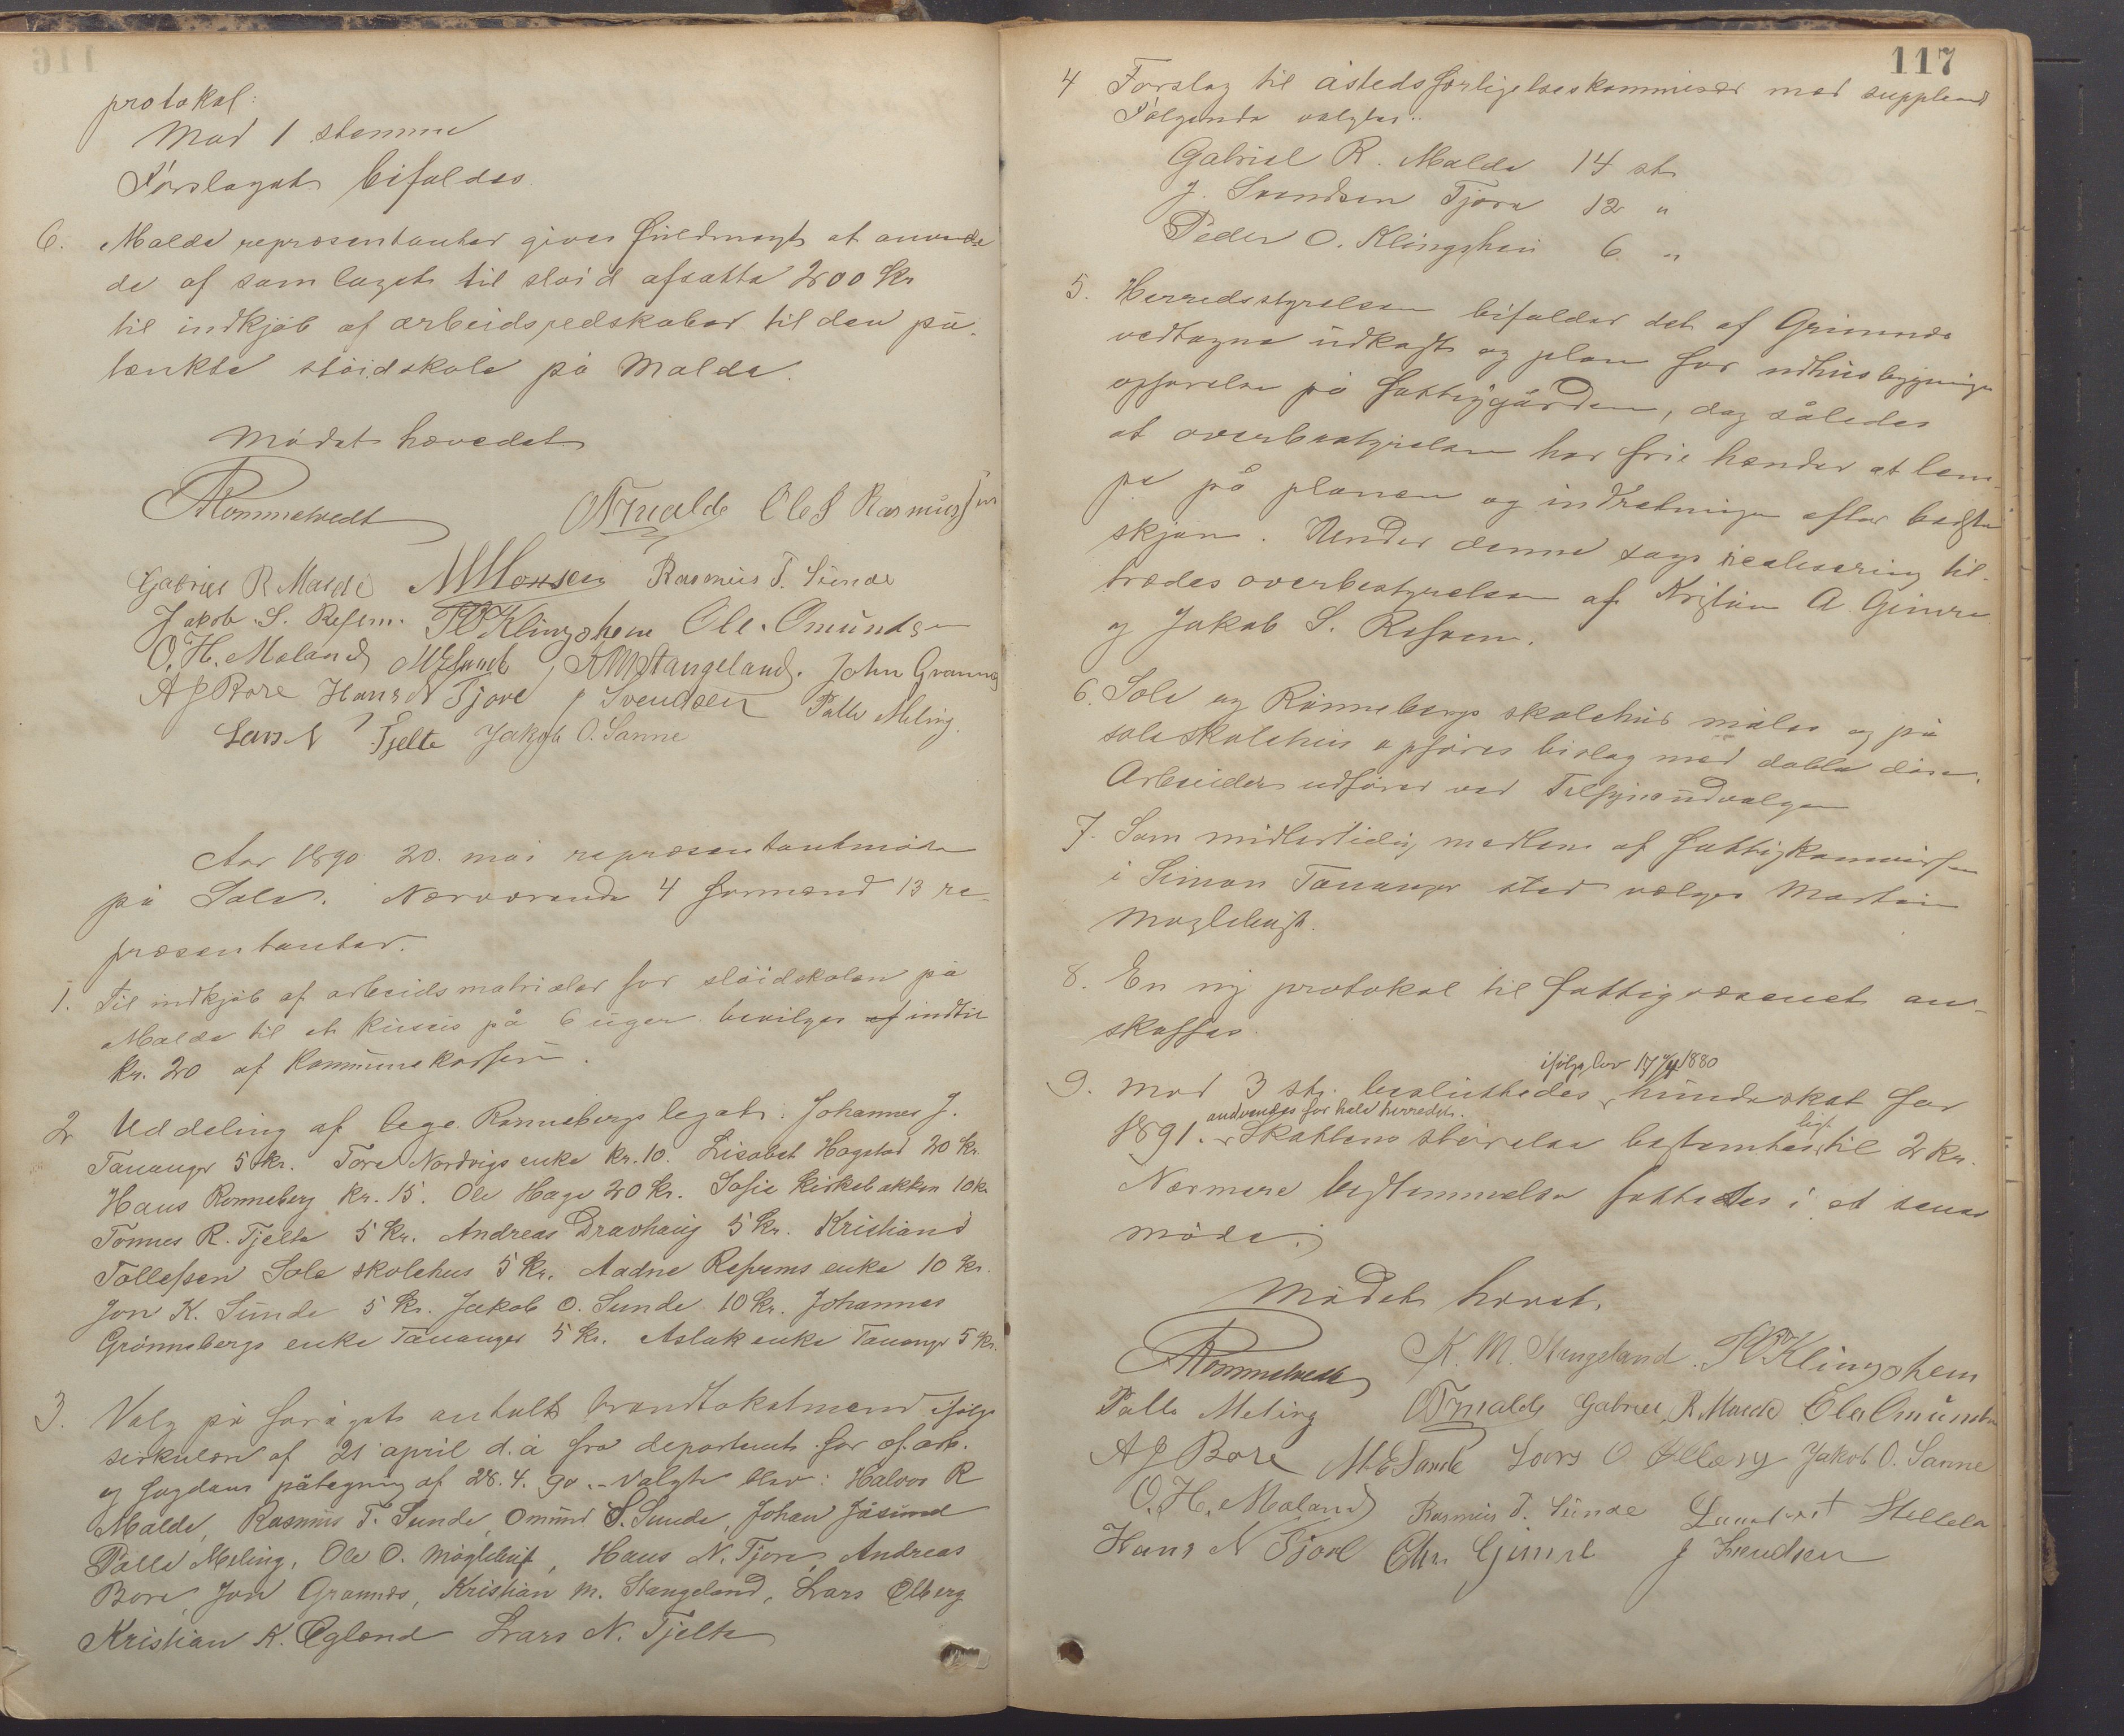 protokol:
Mod 1 stemme
Forslaget bifaldes
6. Malde repræsentanter gives fuldmagt at anvende
de af samlaget til sløid afsatte 200 Kr
til indkjøb af arbeidsredskaber til den på-
tænkte slöidskole på Malde.
Mødet hævedet
Rommetvedt O Tmalde Ole S Rasmussen
Gabriel R Malde M Monsen Rasmus T. Sunde
Jakob S. Refsem. PO Klingsheim Ole Omunds
O. H. Mæland M E Sande, K M Stangeland. John Grannes
A J Bore Hans N Tjore J Svendsen Palle Meling.
Lars N Tjelte Jakob O. Sanne
Aar 1890 20. mai repræsentantmöde
på Sola. Nærværende 4 formænd 13 re-
præsentanter.
1. Til indkjøb af arbeidsmatrialer for slöidskolen på
Malde til et kursus på 6 uger bevilges af indtil
kr. 20 af Kommunekassen.
2 Uddeling af lege Rønnebergs legat: Johannes J.
Tananger 5 kr. Tore Nordvigs enke kr. 10. Lisabet Hogstad 20 Kr.
Hans Rønneberg kr. 15. Ole Hage 20 Kr. Sofie Kirkebakken 10 kr
Tønnes R. Tjelta 5 Kr. Andreas Dravhaug 5 Kr. Kristiane
Tollefsen Sole skolehus 5 Kr. Aadne Refsems enke 10 Kr.
Jon K. Sunde 5 Kr. Jakob O. Sunde 10 Kr. Johannes
Grønnebergs enke Tananger 5 Kr. Aslak enke Tananger 5 Kr.
3. Valg på forøget antalt brandtakstmænd ifølge
sirkulære af 21 april d.å fra departemt. for of. arb.
og fogdens påtegning af 28.4.90.- Valgte blev: Halvor R
Malde, Rasmus T. Sunde, Omund S. Sunde, Johan Jåsund
Palle Meling, Ole O. Møglebust, Hans N. Tjore, Andreas
Bore, Jon Grannes, Kristian M. Stangeland, Lars Ølberg
Kristian K. Egland Lars N. Tjelta
117
4 Forslag til åstedsforligelseskommisær med suppleant
Følgende valgtes:
Gabriel R. Malde 14 st
J. Svendsen Tjora 12 "
Peder O. Klingsheim 6 "
5. Herredsstyrelsen bifalder det af Grannes
vedtagne udkast og plan for udhusbygnings
opførelse på fattiggården, dog således
at overbestyrelsen har frie hænder at lem-
pe på planen og indretningen efter bedste
skjøn. Under denne sags realisering til-
trædes overbestyrelsen af Kristian A. Gimre
og Jakob S. Refsem.
6. Sole og Rønnebergs skolehus males og på
sole skolehus opføres bislag med doble døre.
Arbeidet udføres ved Tilsynsudvalgen
7. Som midlertidig medlem af fattigkommissen
i Simon Tananger sted vælges Martin
Møglebust.
8. En ny protokol til fattigvæsenet an-
skaffes.
ifølge lov 17/4 1880
9. Mod 3 st. besluttedes hundeskat for
andvendes for hele herredet.
1891. Skattens størrelse bestemtes til 2 kr.
Nærmere bestemmelse fattedes i et senere
møde.
Mødet hævet.
Rommetvedt K. M. Stangeland. PO Klingsheim
Palle Meling O Tmalde Gabriel R Malde Ole Omundsen
A J Bore M. E Sande Lars O Ølberg Jakob O. Sanne
O. H. Mæland Rasmus T. Sunde
Hans N Tjore Chr. Gimre J Svendsen